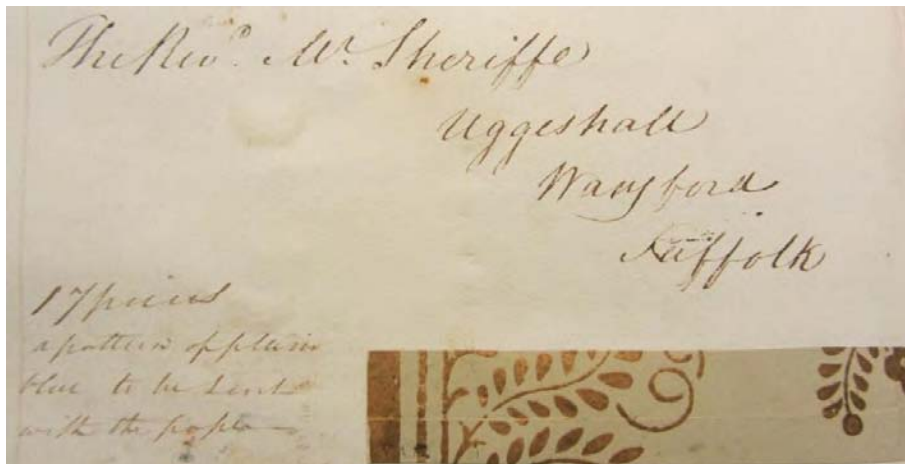 The Revd. Mr. Sheriffe
Uggeshall
Wangford
Suffolk
17 pieces
a pattern of plain
blue to be sent
with the paper